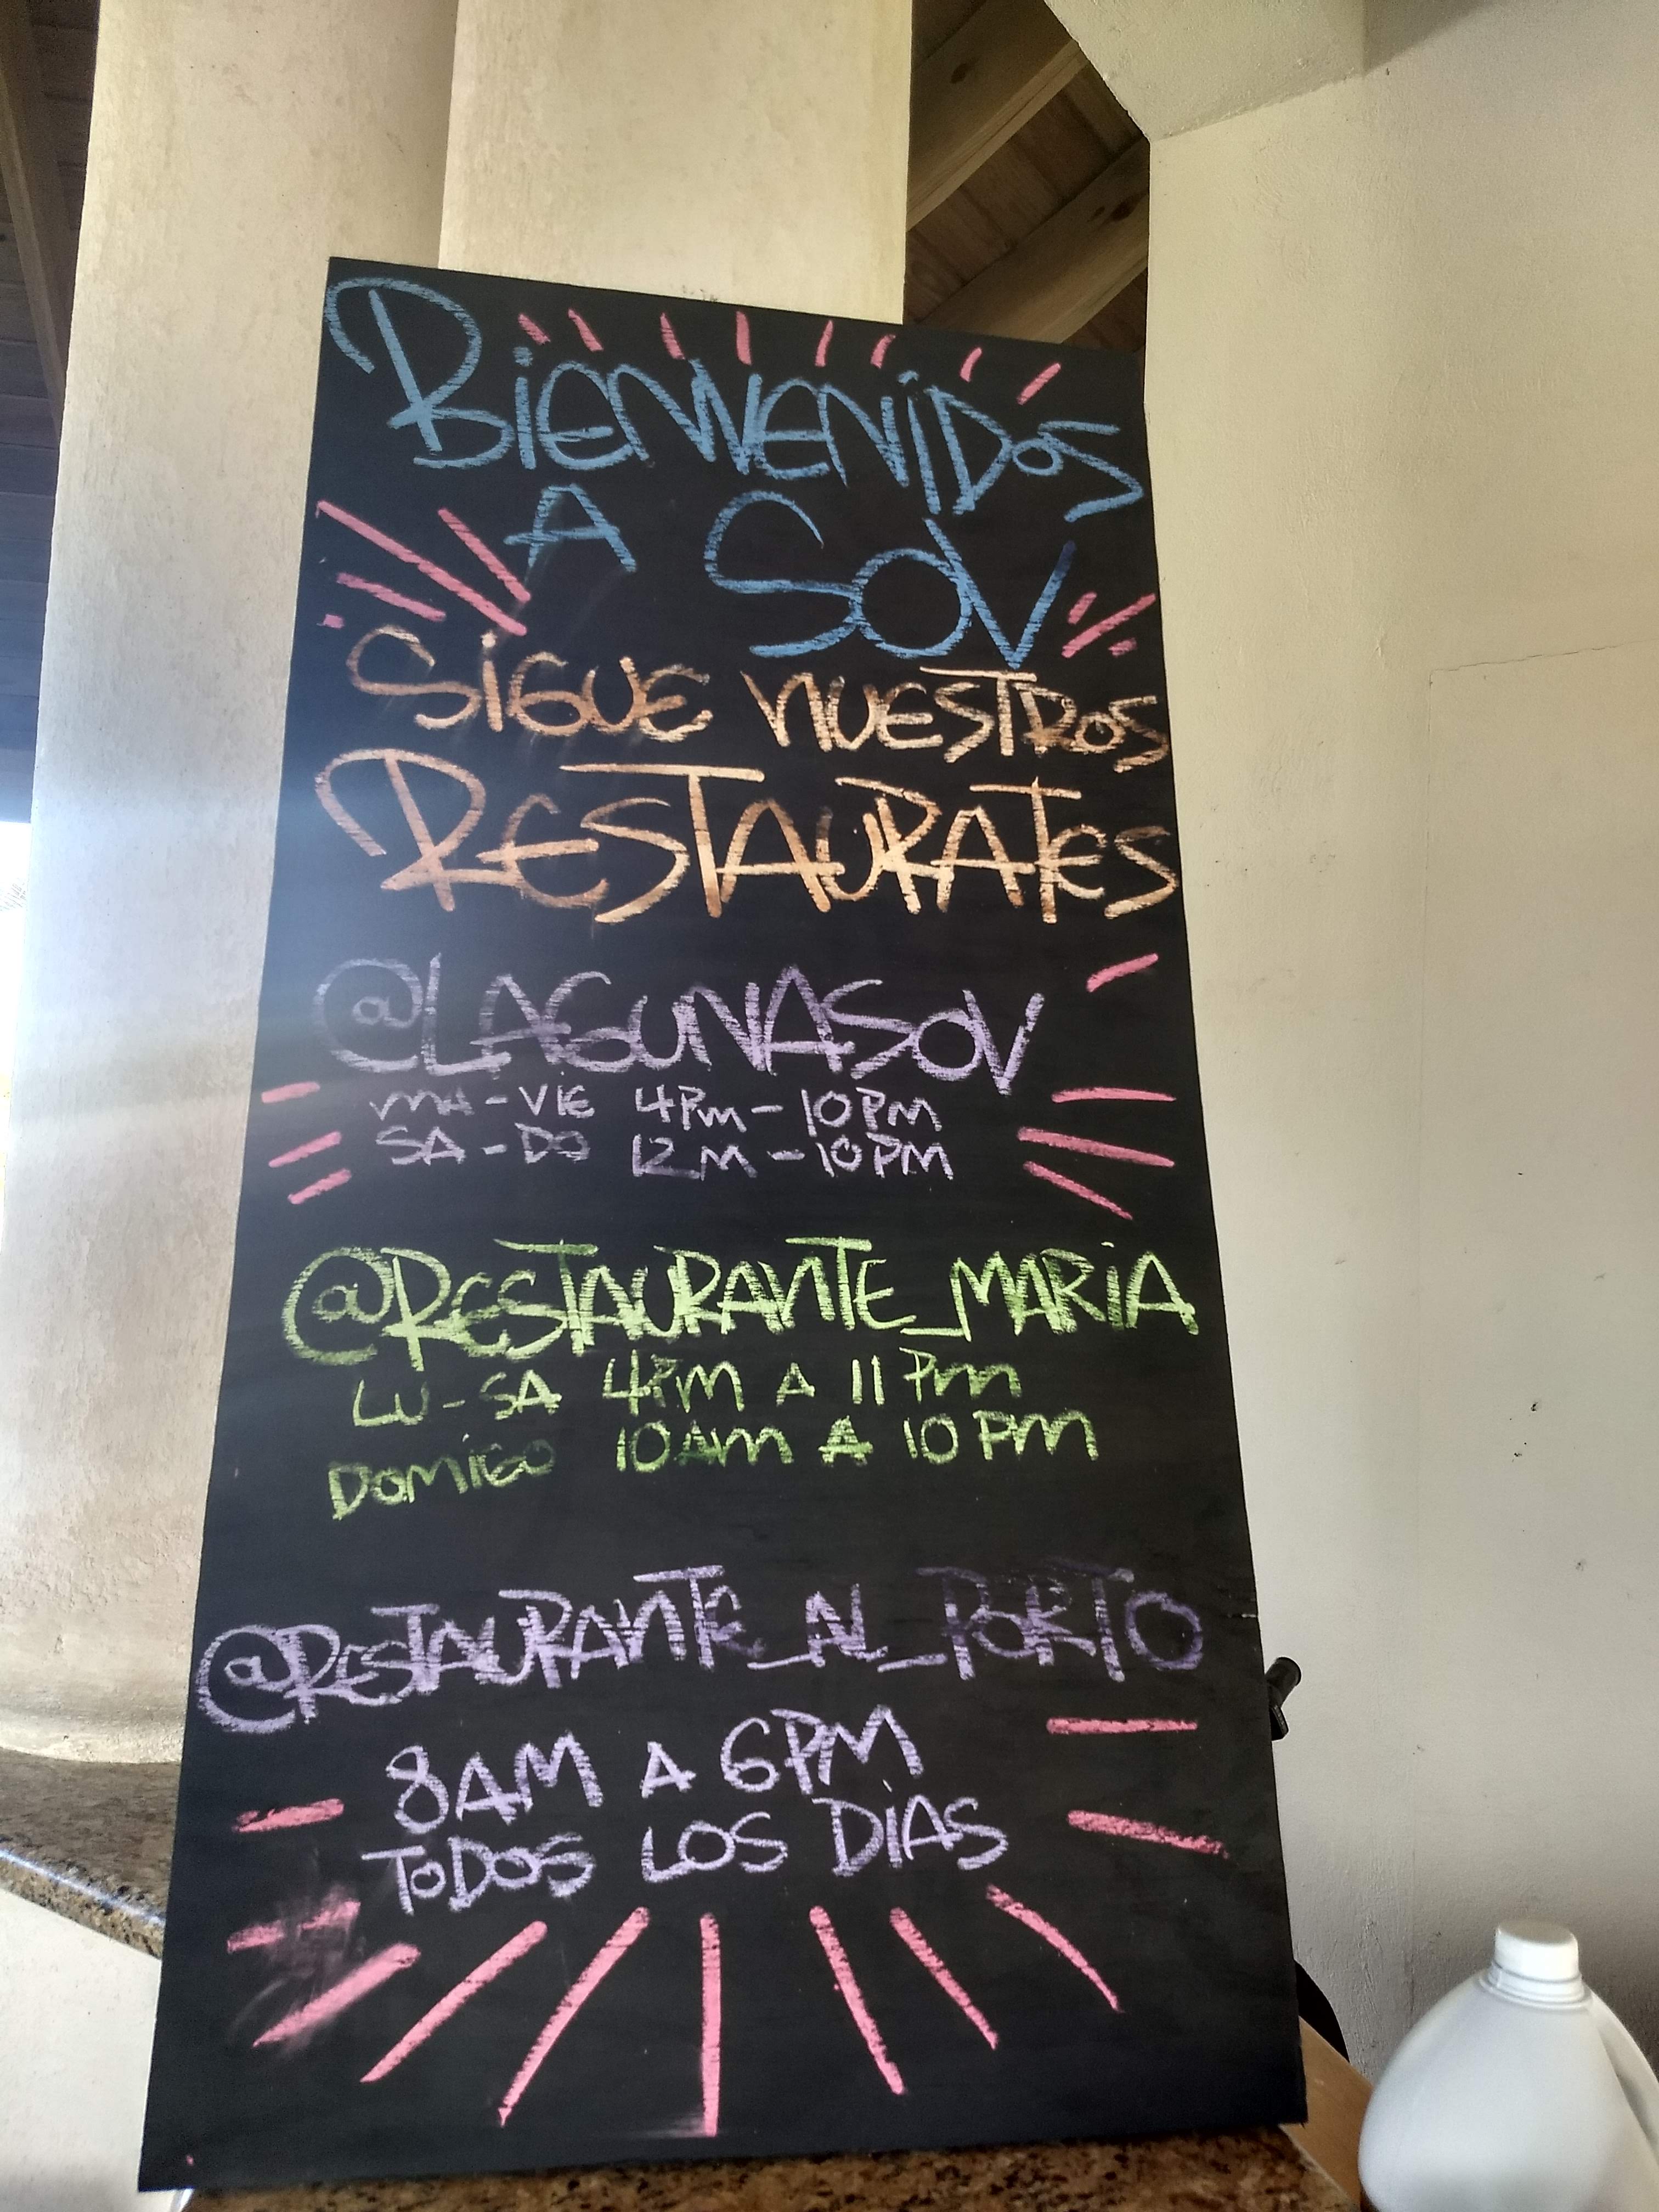 BIENVENIDOS
A SOV
SIGUE NUESTROS
RESTAURATES
@LAGUNASOV
MA - VIE 4PM - 10PM
SA - DO 12M - 10PM
@RESTAURANTE_MARIA
LU - SA 4PM A 11PM
DOMIGO 10AM A 10PM
@RESTAURANTE_AL_PORTO
8AM A 6PM
TODOS LOS DIAS